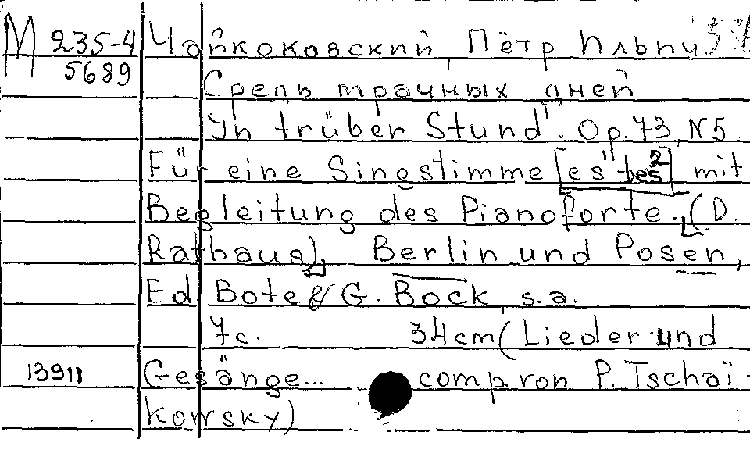 M 235-4 Чайкоковский, Пётр Ильич 37
5689 Средь мрачных дней
In trüber Stund'. Op. 73, N5.
Für eine Singstimme [es¹-bes²] mit
Begleitung des Pianoforte. (D.
Rathaus). Berlin und Posen,
Ed Bote & G. Bock, s.a.
7с. 34cm (Lieder und
13911 Gesänge... comp von P. Tschaï-
kowsky)